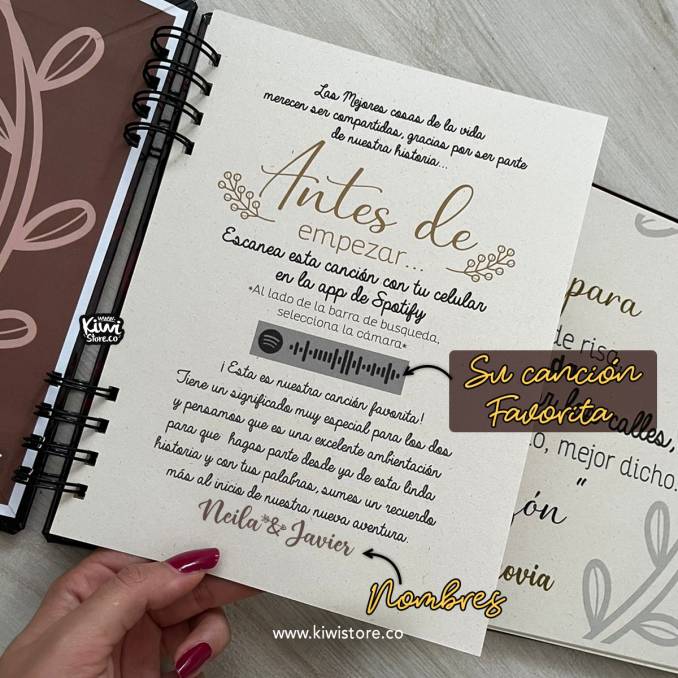 Las Mejores cosas de la vida
merecen ser compartidas, gracias por ser parte
de nuestra historia...
Antes de
empezar...
Escanea esta canción con tu celular
en la app de Spotify
*Al lado de la barra de busqueda,
selecciona la cámara*
¡Esta es nuestra canción favorita!
Tiene un significado muy especial para los dos
y pensamos que es una excelente ambientación
para que hagas parte desde ya de esta linda
historia y con tus palabras, sumes un recuerdo
más al inicio de nuestra nueva aventura.
Neila & Javier
Su canción
Favorita
Nombres
www.kiwistore.co
Kiwi
Store.co
Kiwi
Store.co
para
de risa
calles,
o, mejor dicho.
"
ón
ovia